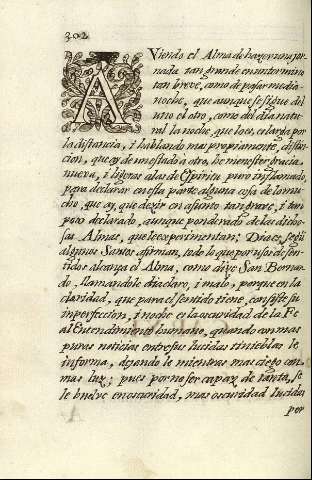 302
AViendo el Alma de hazer una jor-
nada tan grande en un termino
tan breve, como de passar media
noche, que aunque se sigue del
uno el otro, como del dia natu-
ral la noche, que loes, es larga por
la distancia, i hablando mas propriamente, distin-
cion, que ay de un estado à otro, he menester gracia
nueva, i ligeras alas de Espiritu puro inflamado,
para declarar en esta parte alguna cosa de lo mu-
cho, que ay, que dezir en assunto tan grave, i tan
poco declarado, aunque ponderado de las dicho-
sas Almas, que le experimentan; Dia es, segũ
algunos Santos afirman, todo lo que por uso de sen-
tidos alcança el Alma, como dize San Bernar-
do, llamandole dia claro, i malo, porque en la
claridad, que para el sentido tiene, consiste su
imperfeccion, i noche es la oscuridad de la Fe
al Entendimiento humano, quando con mas
puras noticias entre sus lucidas tinieblas le
informa, dejando le mientras mas ciego con
mas luz; pues por no ser capaz de tanta, se
le buelve en oscuridad, mas oscuridad lucida
por